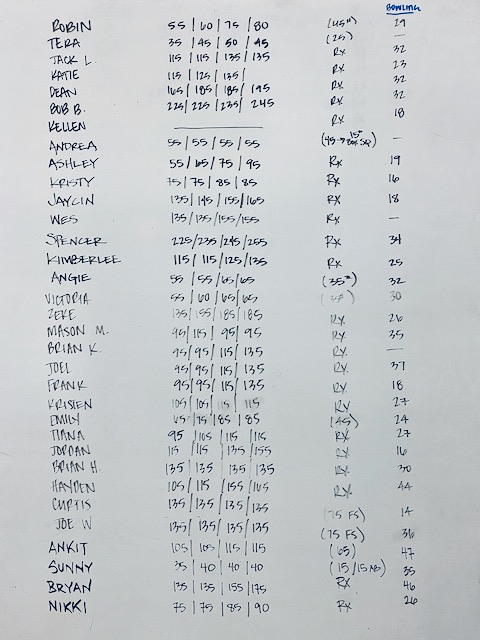 BOWLING
ROBIN 55 | 60 | 75 | 80 (45#) 29
TERA 35 | 45 | 50 | 45 (25) —
JACK L. 115 | 115 | 135 | 135 Rx 32
KATIE 115 | 125 | 135 | Rx 23
DEAN 165 | 185 | 185 | 195 Rx 32
BOB B. 225 | 225 | 235 | 245 Rx 32
KELLEN ———— Rx 18
ANDREA 55 | 55 | 55 | 55 (45 → 15# —
ASHLEY 55 | 65 | 75 | 95 Rx 19
KRISTY 75 | 75 | 85 | 85 Rx 16
JAYCIN 135 | 145 | 155 | 165 Rx 18
WES 135 | 135 | 155 | 155 Rx —
SPENCER 225 | 235 | 245 | 255 Rx 34
KIMBERLEE 115 | 115 | 125 | 135 Rx 25
ANGIE 55 | 55 | 65 | 65 (35#) 32
VICTORIA 55 | 60 | 65 | 65 30
ZEKE 135 | 155 | 185 | 185 Rx 26
MASON M. 95 | 115 | 95 | 95 Rx 35
BRIAN K. 95 | 95 | 115 | 135 Rx —
JOEL 95 | 95 | 115 | 135 Rx 37
FRANK 95 | 95 | 115 | 135 Rx 18
KRISTEN 105 | 105 | 115 | 115 Rx 27
EMILY 65 | 75 | 85 | 85 (45) 24
TIANA 95 | 105 | 115 | 115 Rx 27
JORDAN 115 | 115 | 135 | 155 Rx 16
BRIAN H. 135 | 135 | 135 | 135 Rx 30
HAYDEN 105 | 115 | 155 | 165 Rx 44
CURTIS 135 | 135 | 135 | 135 (75 FS) 14
JOE W 135 | 135 | 135 | 135 (75 FS) 36
ANKIT 105 | 105 | 115 | 115 (65) 47
SUNNY 35 | 40 | 40 | 40 (15/15 AB) 35
BRYAN 135 | 135 | 155 | 175 Rx 46
NIKKI 75 | 75 | 85 | 90 Rx 26